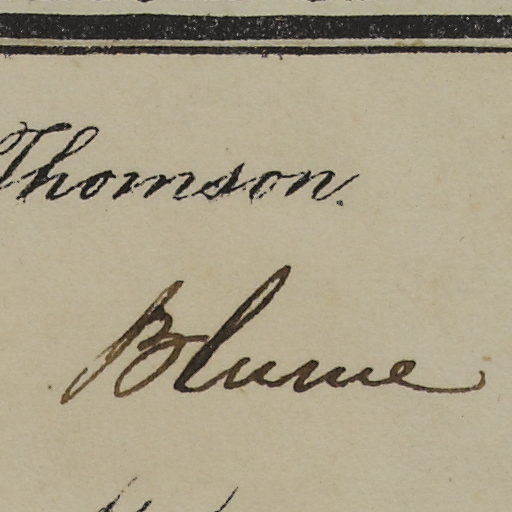 Thomson.
Blume